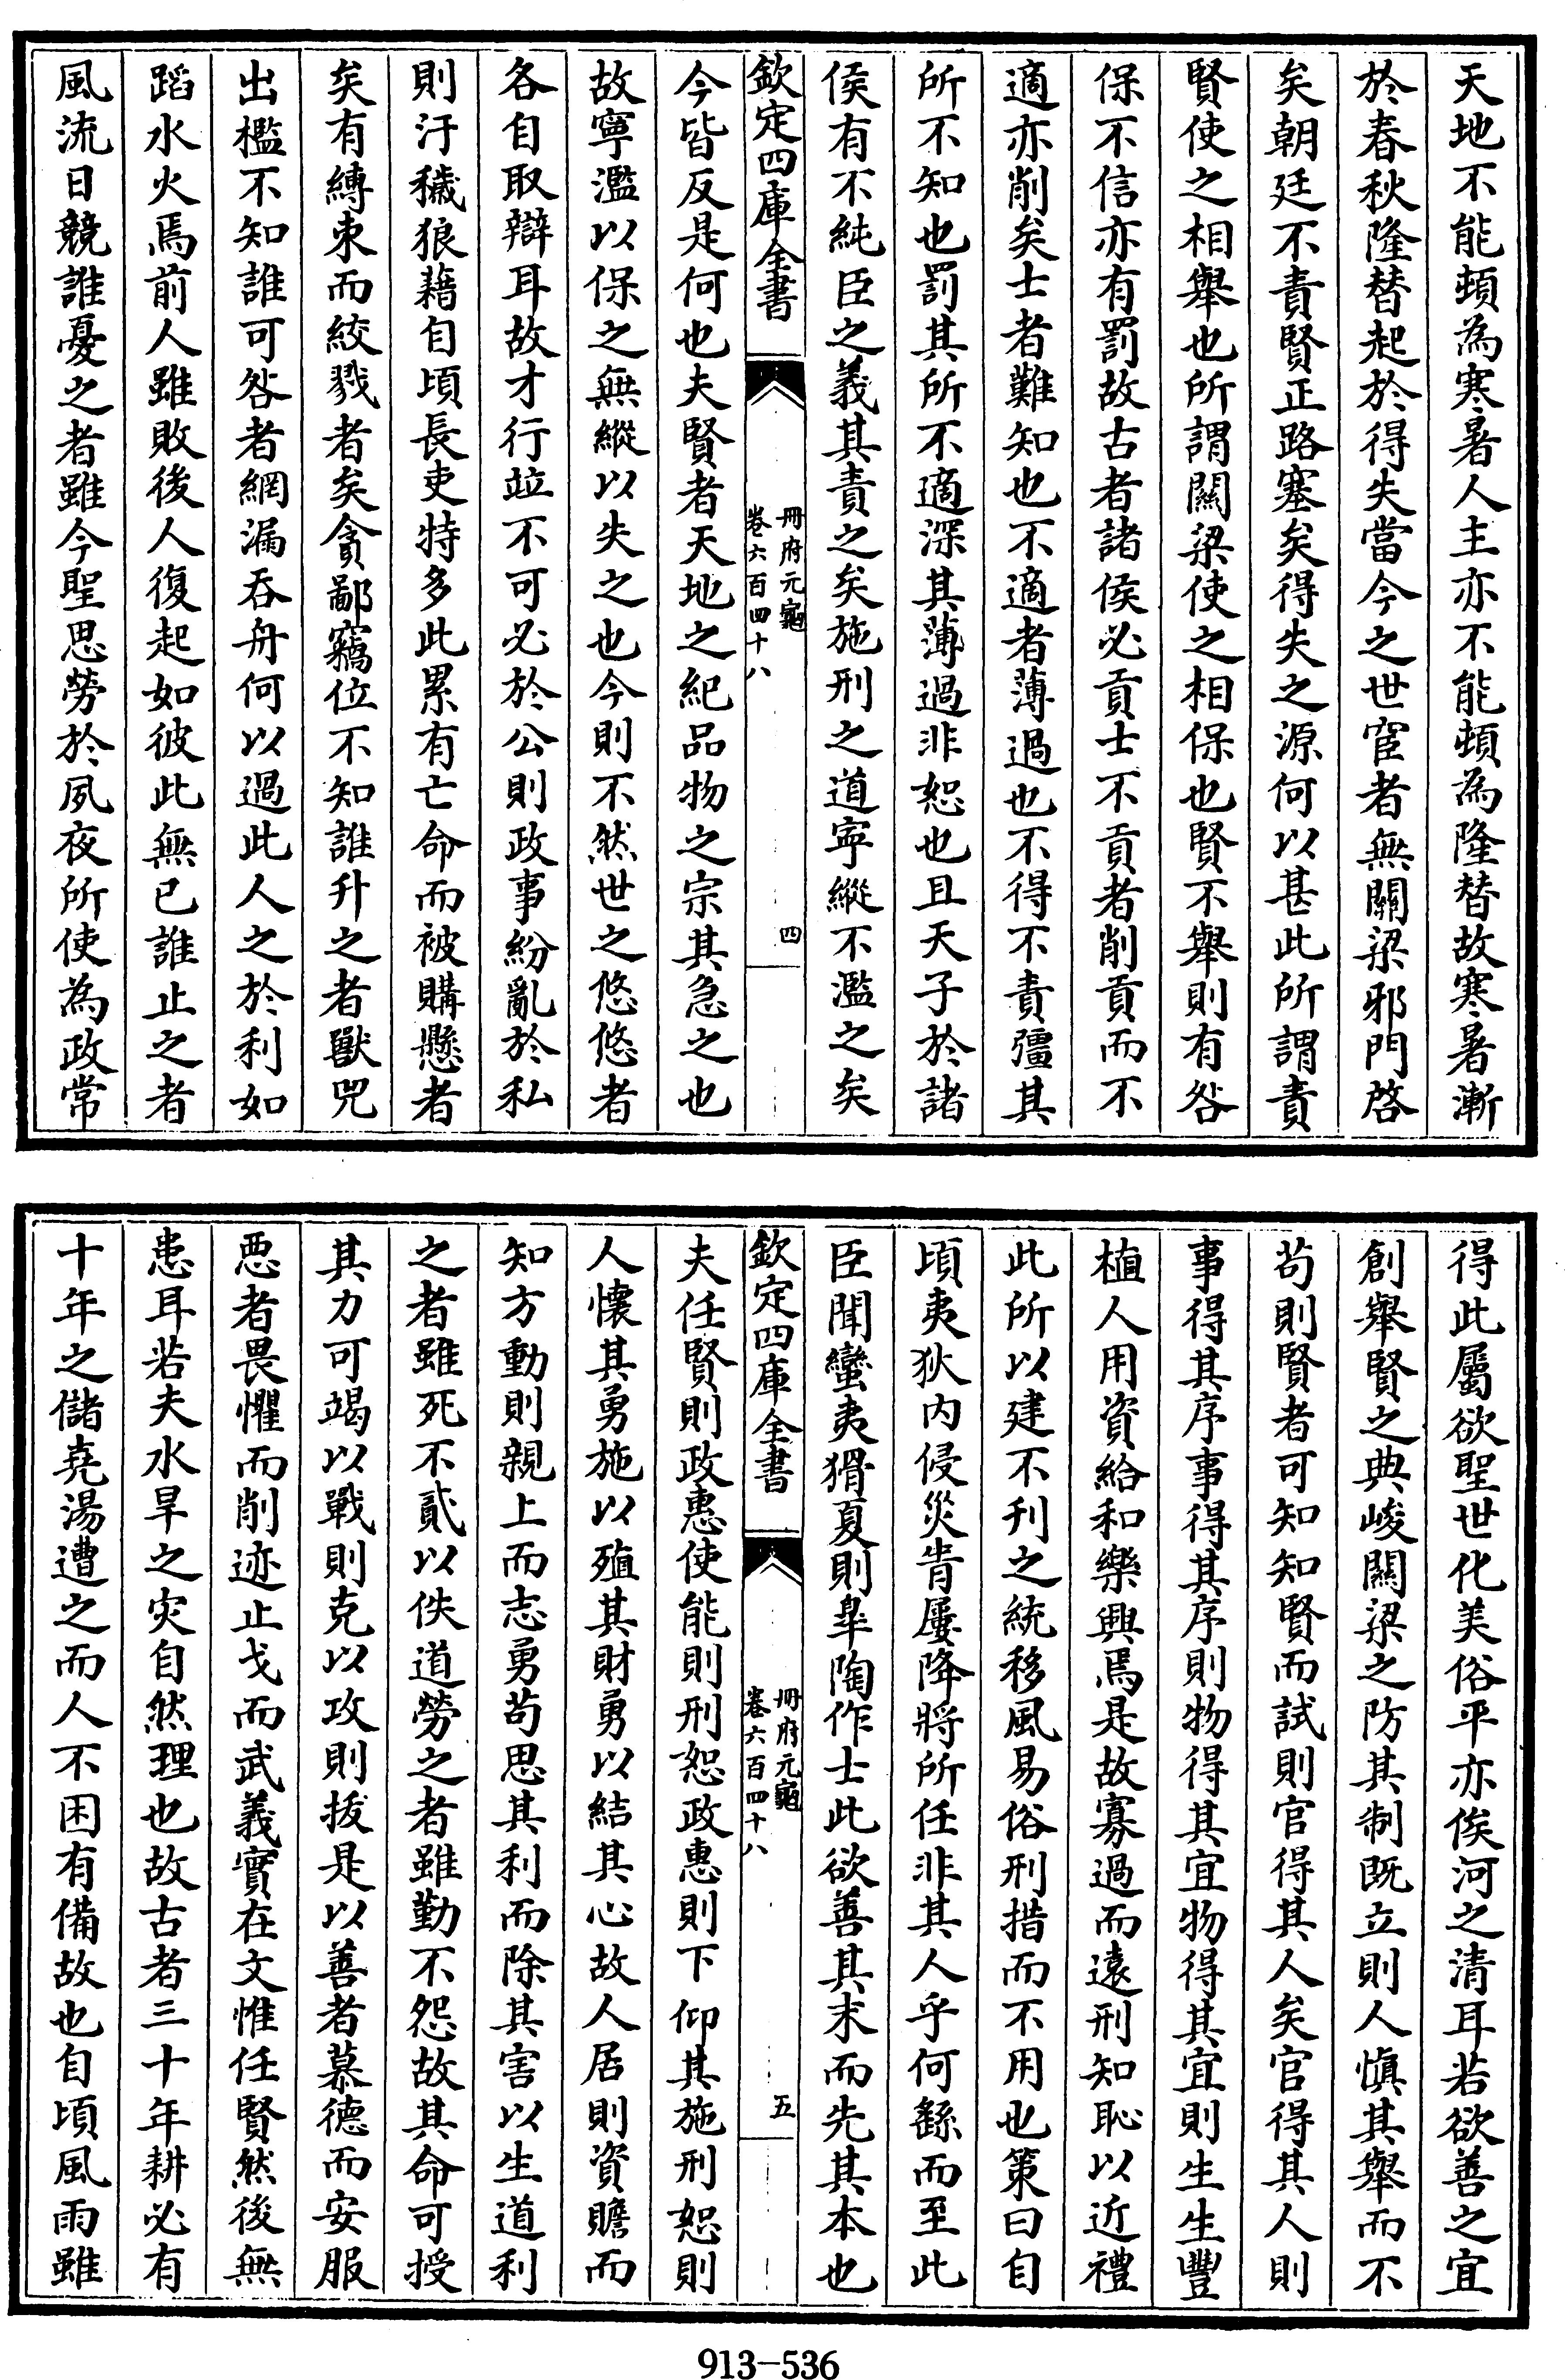 天地不能頓為寒暑人主亦不能頓為隆替故寒暑漸
於春秋隆替起於得失當今之世宦者無關梁邪門啓
矣朝廷不責賢正路塞矣得失之源何以甚此所謂責
賢使之相舉也所謂關梁使之相保也賢不舉則有咎
保不信亦有罰故古者諸侯必貢士不貢者削貢而不
適亦削矣士者難知也不適者薄過也不得不責彊其
所不知也罰其所不適深其薄過非恕也且天子於諸
侯有不純臣之義其責之矣施刑之道寧縱不濫之矣
欽定四庫全書
冊府元龜
卷六百四十八
四
今皆反是何也夫賢者天地之紀品物之宗其急之也
故寧濫以保之無縱以失之也今則不然世之悠悠者
各自取辯耳故才行竝不可必於公則政事紛亂於私
則汙穢狼藉自頃長吏特多此累有亡命而被購懸者
矣有縛束而絞戮者矣貪鄙竊位不知誰升之者獸兕
出檻不知誰可咎者網漏吞舟何以過此人之於利如
蹈水火焉前人雖敗後人復起如彼此無已誰止之者
風流日競誰憂之者雖今聖思勞於夙夜所使為政常
得此屬欲聖世化美俗平亦俟河之清耳若欲善之宜
創舉賢之典峻關梁之防其制既立則人慎其舉而不
苟則賢者可知知賢而試則官得其人矣官得其人則
事得其序事得其序則物得其宜物得其宜則生生豐
植人用資給和樂興焉是故寡過而遠刑知恥以近禮
此所以建不刋之統移風易俗刑措而不用也策曰自
頃夷狄内侵災眚屢降將所任非其人乎何繇而至此
臣聞蠻夷猾夏則臯陶作士此欲善其末而先其本也
欽定四庫全書
冊府元龜
卷六百四十八
五
夫任賢則政惠使能則刑恕政惠則下 仰其施刑恕則
人懷其勇施以殖其財勇以結其心故人居則資贍而
知方動則親上而志勇苟思其利而除其害以生道利
之者雖死不貳以佚道勞之者雖勤不怨故其命可授
其力可竭以戰則克以攻則拔是以善者慕德而安服
惡者畏懼而削迹止戈而武義實在文惟任賢然後無
患耳若夫水旱之灾自然理也故古者三十年耕必有
十年之儲堯湯遭之而人不困有備故也自頃風雨雖
913-536